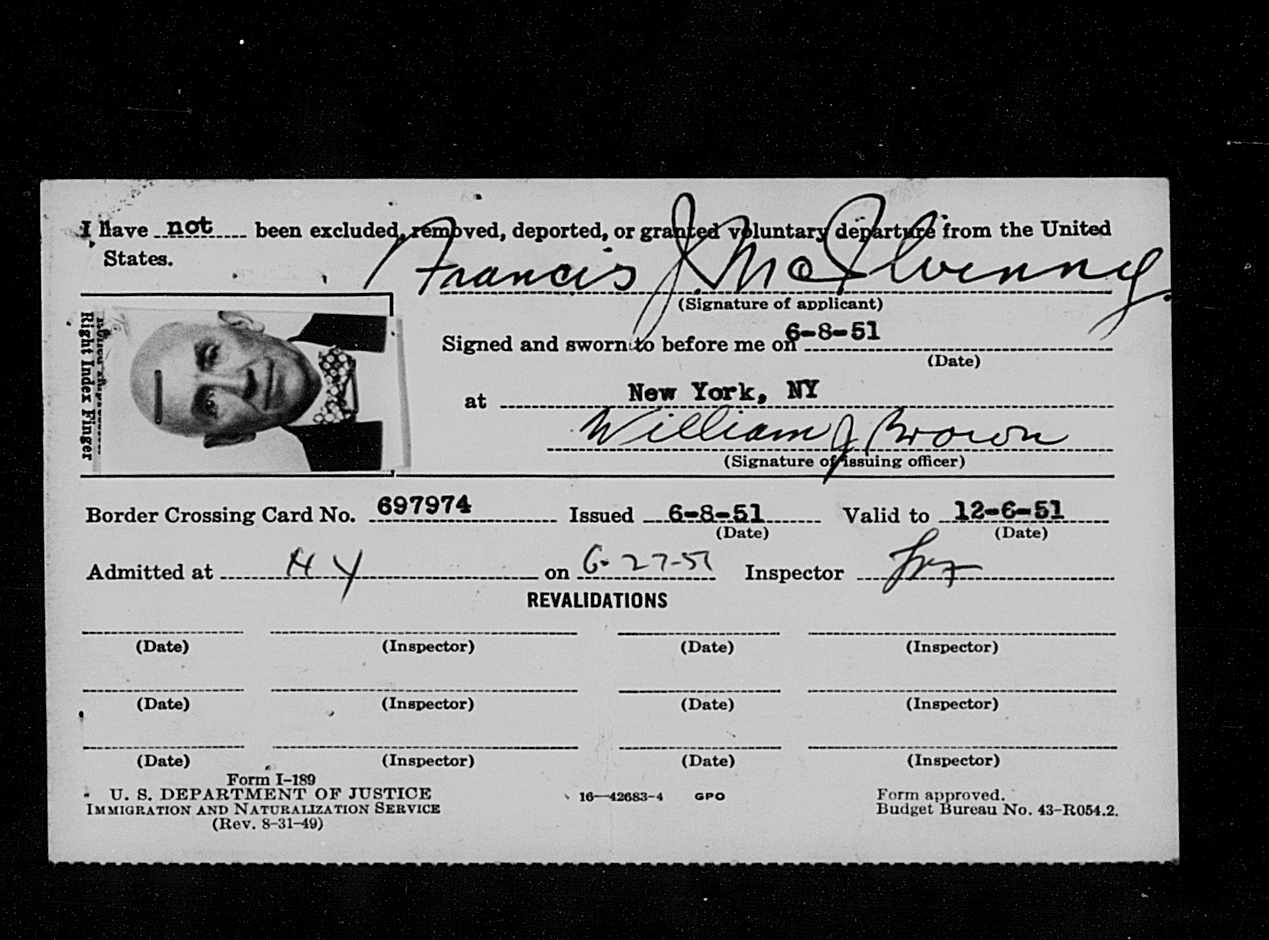 I have not been excluded, removed, deported, or granted voluntary departure from the United
States.
Francis J. McIlvenny
(Signature of applicant)
Right Index Finger
Signed and sworn to before me on 6-8-51
(Date)
at New York, NY
William J Brown
(Signature of issuing officer)
Border Crossing Card No. 697974 Issued 6-8-51 Valid to 12-6-51
(Date) (Date)
Admitted at NY on 6-27-51 Inspector
REVALIDATIONS
(Date) (Inspector) (Date) (Inspector)
(Date) (Inspector) (Date) (Inspector)
(Date) (Inspector) (Date) (Inspector)
Form I-189
U. S. DEPARTMENT OF JUSTICE 16—42683-4 GPO Form approved.
IMMIGRATION AND NATURALIZATION SERVICE Budget Bureau No. 43-R054.2.
(Rev. 8-31-49)